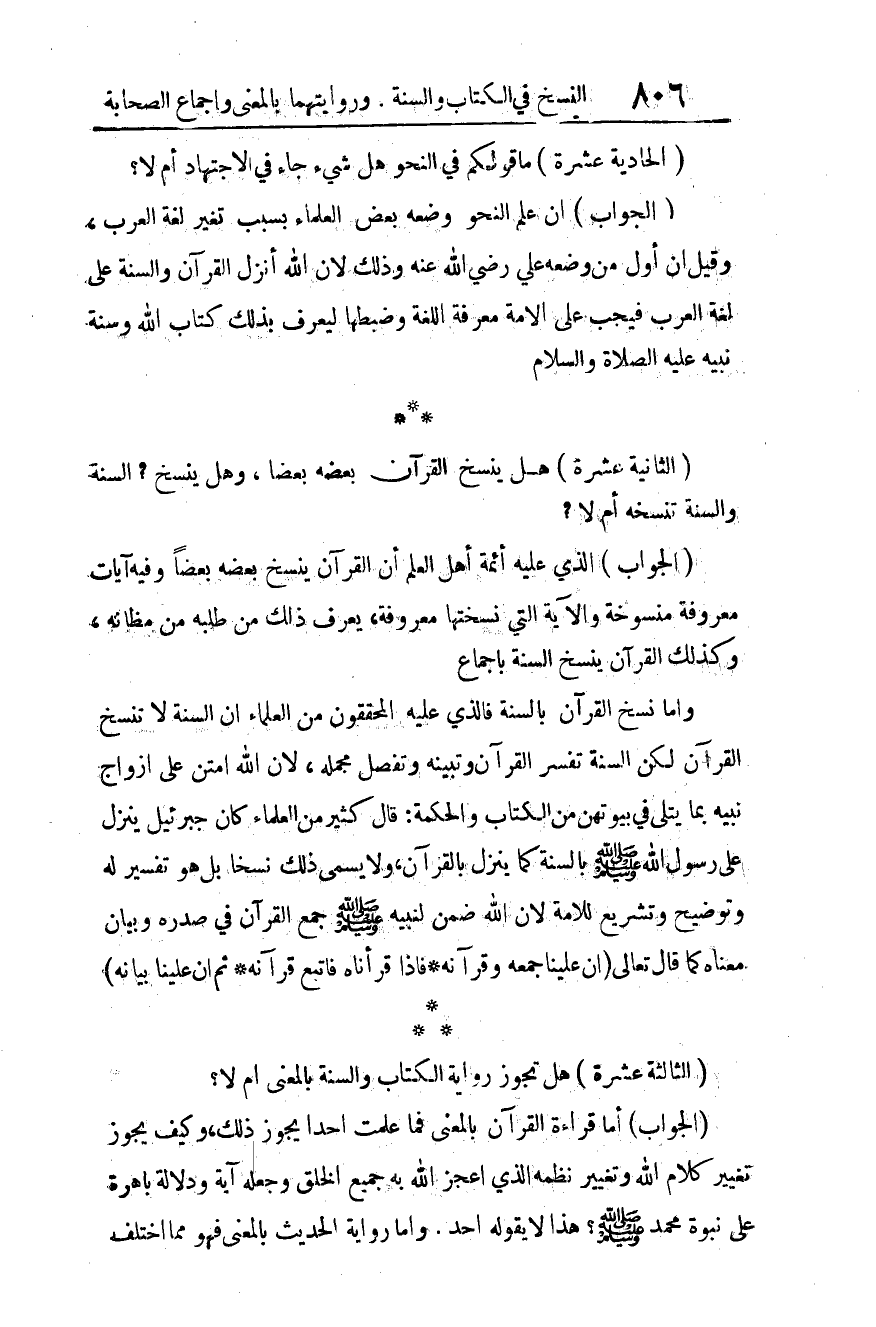 ٨٠٦ النسخ في الكتاب والسنة . وروايتهما بالمعنى واجماع الصحابة
( الحادية عشرة ) ماقولكم في النحو هل شيء جاء في الاجتهاد أم لا؟
( الجواب ) ان علم النحو وضعه بعض العلماء بسبب تغير لغة العرب ،
وقيل ان أول من وضعه علي رضي الله عنه وذلك لان الله أنزل القرآن والسنة على
لغة العرب فيجب على الامة معرفة اللغة وضبطها ليعرف بذلك كتاب الله وسنة
نبيه عليه الصلاة والسلام
***
( الثانية عشرة ) هـل ينسخ القرآن بعضه بعضا ، وهل ينسخ ؟ السنة
والسنة تنسخه أم لا ؟
( الجواب ) الذي عليه أئمة أهل العلم أن القرآن ينسخ بعضه بعضاً وفيه آيات
معروفة منسوخة والآية التي نسختها معروفة، يعرف ذلك من طلبه من مظانه ،
وكذلك القرآن ينسخ السنة باجماع
واما نسخ القرآن بالسنة فالذي عليه المحققون من العلماء ان السنة لا تنسخ
القرآن لكن السنة تفسر القرآن وتبينه وتفصل مجمله ، لان الله امتن على ازواج
نبيه بما يتلى في بيوتهن من الكتاب والحكمة: قال كثير من العلماء كان جبرئيل ينزل
على رسول الله ﷺ بالسنة كما ينزل بالقرآن، ولا يسمى ذلك نسخا بل هو تفسير له
وتوضيح وتشريع للامة لان الله ضمن لنبيه ﷺ جمع القرآن في صدره وبيان
معناه كما قال تعالى (ان علينا جمعه وقرآنه* فاذا قرأناه فاتبع قرآنه* ثم ان علينا بيانه)
*
* *
( الثالثة عشرة ) هل تجوز رواية الكتاب والسنة بالمعنى ام لا؟
(الجواب) أما قراءة القرآن بالمعنى فما علمت احدا يجوز ذلك، وكيف يجوز
تغيير كلام الله وتغيير نظمه الذي اعجز الله به جميع الخلق وجعله آية ودلالة باهرة
على نبوة محمد ﷺ ؟ هذا لا يقوله احد . واما رواية الحديث بالمعنى فهو مما اختلف